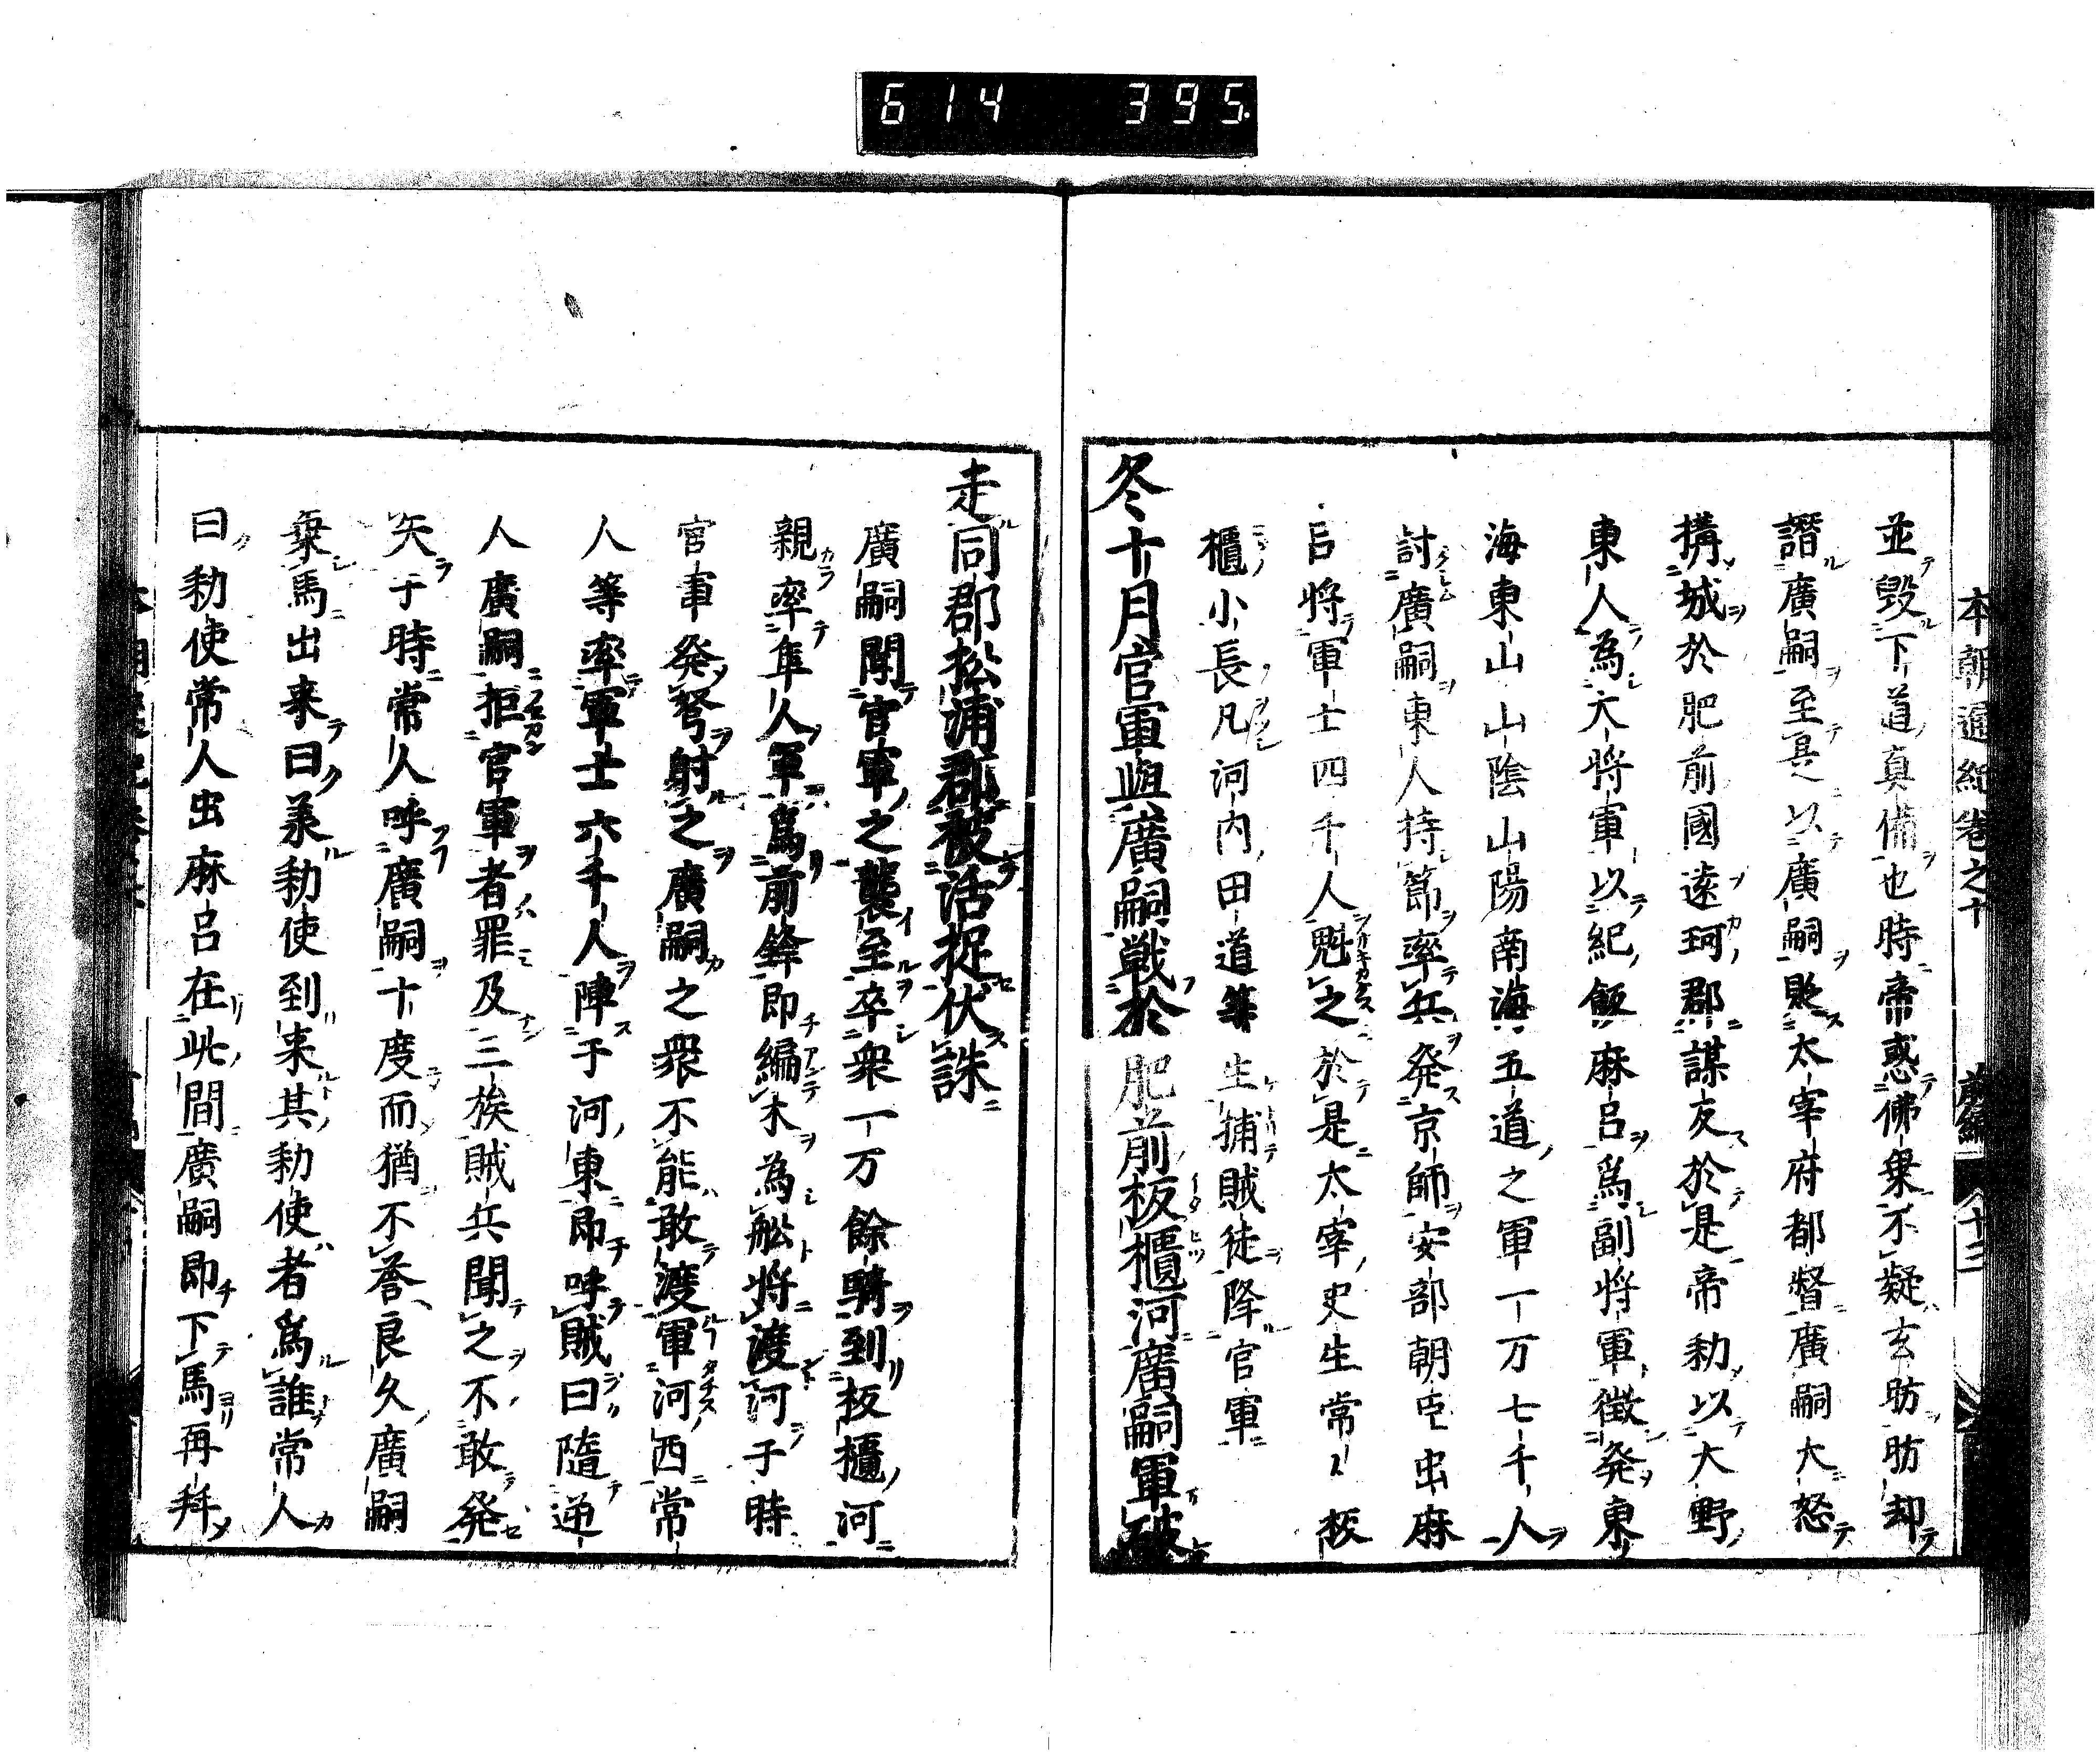 614 395.
本朝通紀卷之十 前編 十三
並毀下道真備也時帝惑佛乗不疑玄昉昉却
譖廣嗣至具以廣嗣貶太宰府都督廣嗣大怒
搆城於肥前國遠珂郡謀反於是帝勅以大野
東人為大將軍以紀飯麻呂爲副將軍徴発東
海東山山陰山陽南海五道之軍一万七千人
討廣嗣東人持節率兵発京師安部朝臣虫麻
呂將軍士四千人魁之於是太宰史生常々板
櫃小長凡河内田道等生捕賊徒降官軍
冬十月官軍與廣嗣戰於肥前板櫃河廣嗣軍破
走同郡松浦郡被活捉伏誅
廣嗣聞官軍之襲至卒衆一万餘騎到板櫃河
親率隼人軍爲前鋒即編木為舩將渡河于時
官軍発弩射之廣嗣之衆不能敢渡軍河西常
人等率軍士六千人陣于河東即呼賊曰隨逆
人廣嗣拒官軍者罪及三族賊兵聞之不敢発
矢于時常人呼廣嗣十度而猶不荅良久廣嗣
乗馬出来曰羕勅使到来其勅使者爲誰常人
曰勅使常人虫麻呂在此間廣嗣即下馬再拜